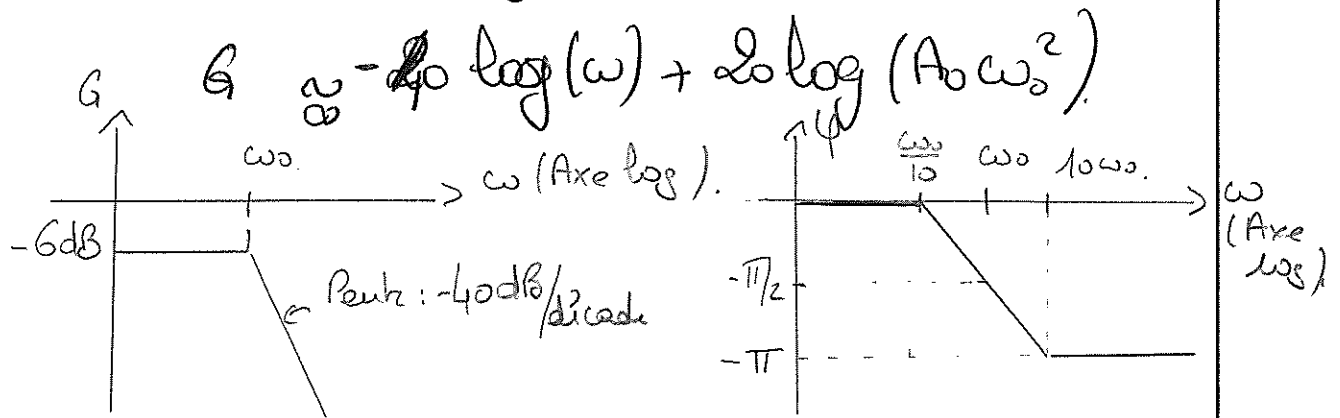 G ≈ -40 log(ω) + 20 log(A₀ω₀²)
∞
G
ω₀.
ω (Axe log).
-6dB
Pente : -40dB/décade
φ
ω₀/10 ω₀ 10ω₀.
ω
(Axe
log).
-π/2
-π